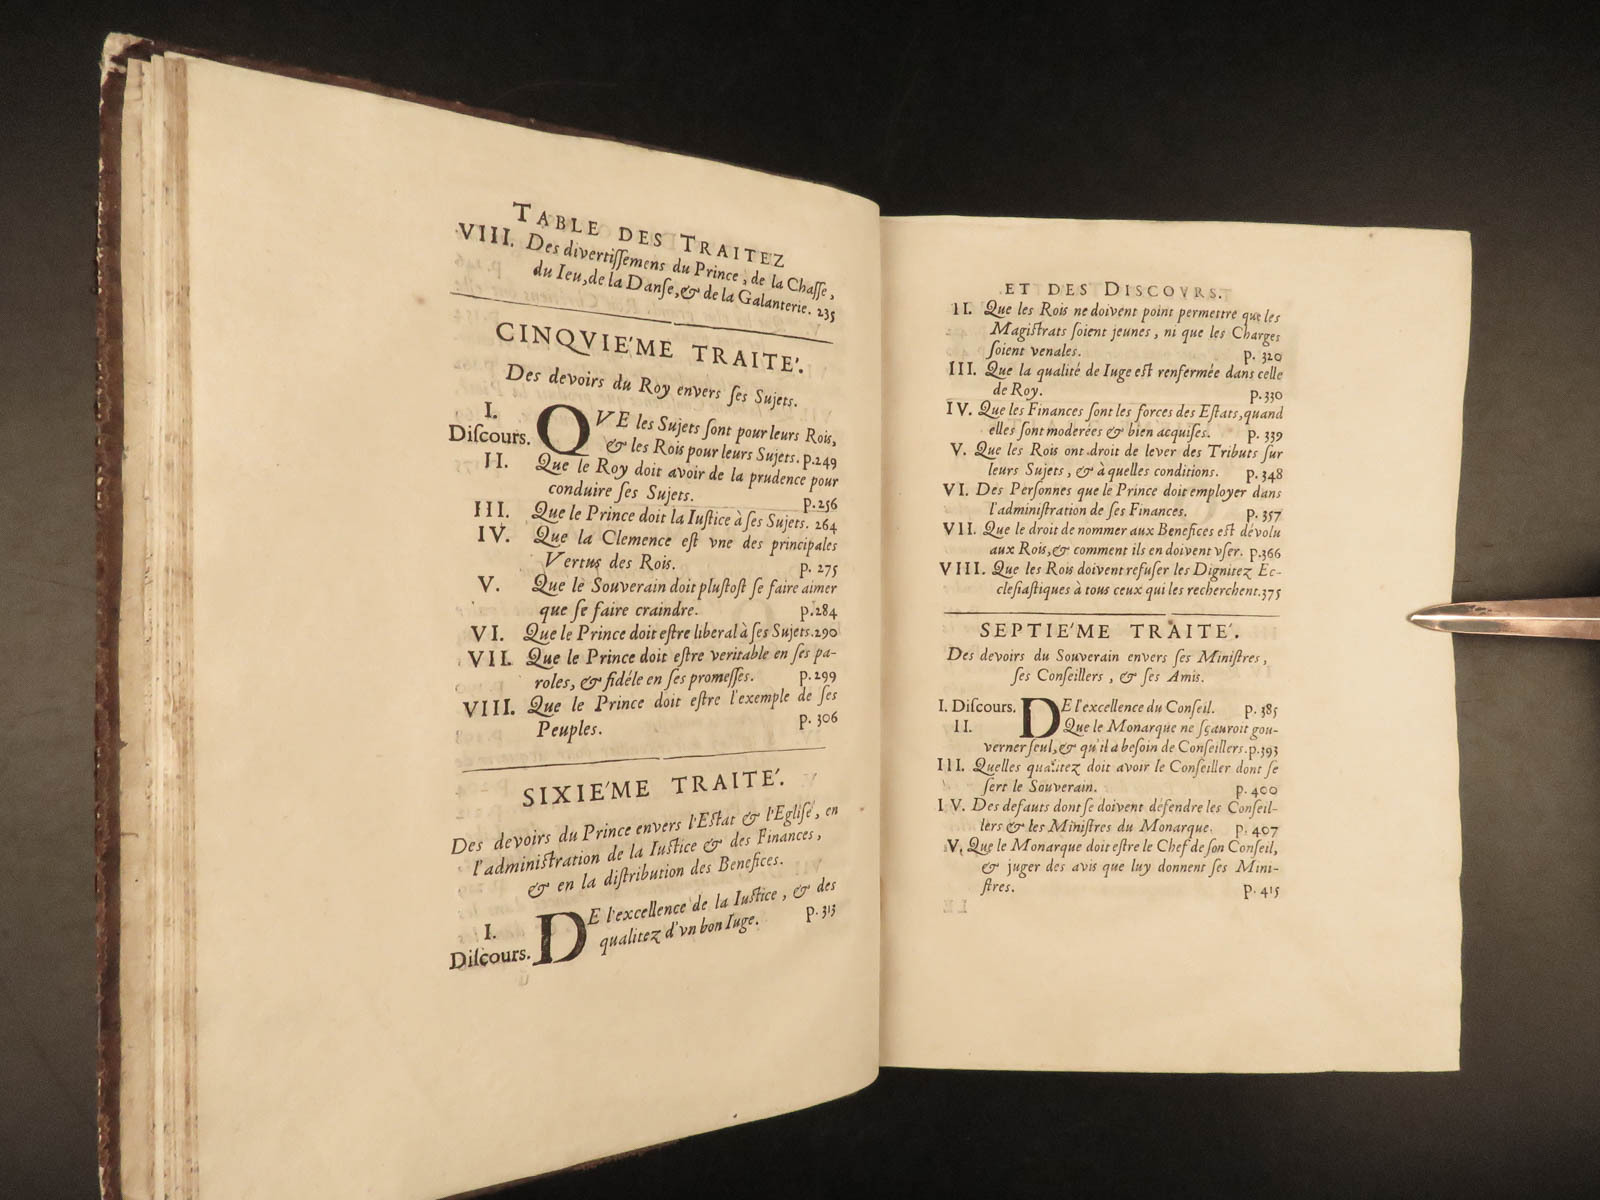 TABLE DES TRAITEZ
VIII. Des divertissemens du Prince, de la Chasse,
du Ieu, de la Danse, & de la Galanterie. 235
CINQVIE'ME TRAITE'.
Des devoirs du Roy envers ses Sujets.
I. Discours. QVE les Sujets sont pour leurs Rois,
& les Rois pour leurs Sujets. p.249
II. Que le Roy doit avoir de la prudence pour
conduire ses Sujets. p.256
III. Que le Prince doit la Iustice à ses Sujets. 264
IV. Que la Clemence est vne des principales
Vertus des Rois. p. 275
V. Que le Souverain doit plustost se faire aimer
que se faire craindre. p.284
VI. Que le Prince doit estre liberal à ses Sujets.290
VII. Que le Prince doit estre veritable en ses pa-
roles, & fidéle en ses promesses. p.299
VIII. Que le Prince doit estre l'exemple de ses
Peuples. p. 306
SIXIE'ME TRAITE'.
Des devoirs du Prince envers l'Estat & l'Eglise, en
l'administration de la Iustice & des Finances,
& en la distribution des Benefices.
I. Discours. DE l'excellence de la Iustice, & des
qualitez d'vn bon Iuge. p. 313
ET DES DISCOVRS.
II. Que les Rois ne doivent point permettre que les
Magistrats soient jeunes, ni que les Charges
soient venales. p. 320
III. Que la qualité de Iuge est renfermée dans celle
de Roy. p.330
IV. Que les Finances sont les forces des Estats, quand
elles sont moderées & bien acquises. p. 339
V. Que les Rois ont droit de lever des Tributs sur
leurs Sujets, & à quelles conditions. p. 348
VI. Des Personnes que le Prince doit employer dans
l'administration de ses Finances. p. 357
VII. Que le droit de nommer aux Benefices est dévolu
aux Rois, & comment ils en doivent vser. p.366
VIII. Que les Rois doivent refuser les Dignitez Ec-
clesiastiques à tous ceux qui les recherchent.375
SEPTIE'ME TRAITE'.
Des devoirs du Souverain envers ses Ministres,
ses Conseillers, & ses Amis.
I. Discours. DE l'excellence du Conseil. p. 385
II. Que le Monarque ne sçauroit gou-
verner seul, & qu'il a besoin de Conseillers. p.393
III. Quelles qualitez doit avoir le Conseiller dont se
sert le Souverain. p. 400
IV. Des defauts dont se doivent défendre les Conseil-
lers & les Ministres du Monarque. p. 407
V. Que le Monarque doit estre le Chef de son Conseil,
& juger des avis que luy donnent ses Mini-
stres. p. 415